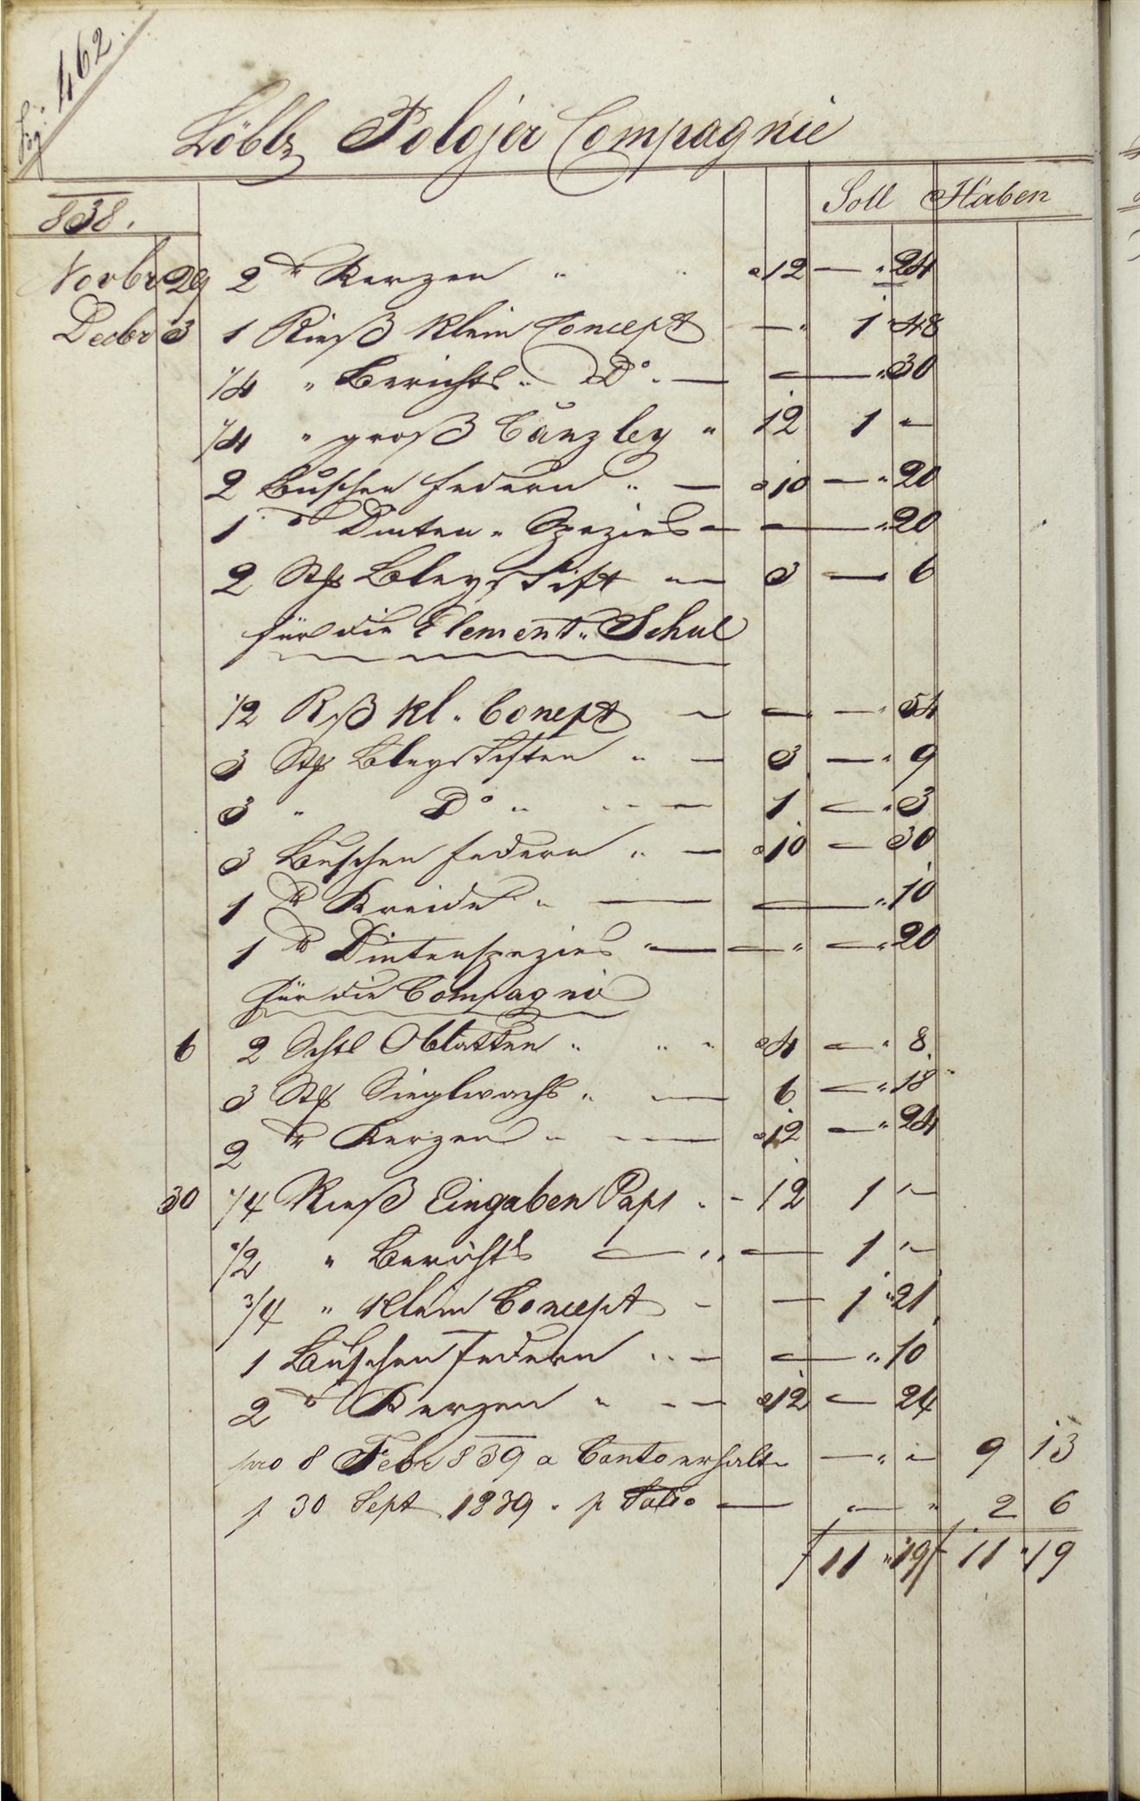 Fog: 462.
Löbl. Polojer Compagnie
838. Soll Haben
Novbr 29 2 ℔ Kerzen " " a 12 — " 24
Decbr 3 1 Rieß Klein Concept — " 1 " 48
1/4 " Berichts " Do " — — " 30
1/4 " groß Canzley " 12 1 " —
2 Buschen Federn " — a 10 — " 20
1 ℔ Dinten " Spezies — — " 20
2 Stk Bleystift " — 3 — 6
für die Element. Schul
1/2 Rß kl. Conept — — — " 54
3 Stk Bleystiften " — 3 — " 9
3 " Do " " — 1 — " 3
3 Buschen Federn " — a 10 — 30
1 ℔ Kreide " — — " 10
1 ℔ Dintenspezies " — — " — " 20
für die Compagnie
6 2 Schtl Oblatten " " " a 4 — " 8
3 Stk Sieglwachs " — 6 — " 18
2 ℔ Kerzen " — a 12 — " 24
30 1/4 Rieß Eingaben Papr " - 12 1 " —
1/2 " Berichts — " " — 1 " —
3/4 " Klein Concept - — 1 " 21
1 Buschen Federn " — — " 10
2 ℔ Kerzen " — a 12 — 24
pro 8 Febr 839 a Conto erhalt. — " — 9 13
p 30 Sept 1839 " p Saldo — " — " 2 6
f 11 " 19 f 11 " 19